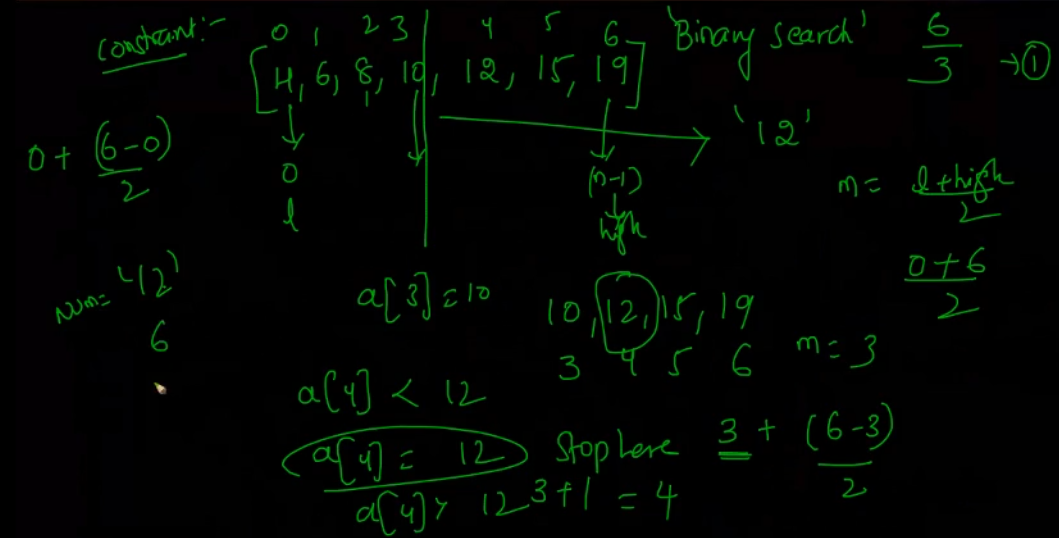 constraint:-
0 1 2 3 4 5 6
[4, 6, 8, 10, 12, 15, 19]
'Binary search'
6
3
→ 1
0 + (6-0)
2
0
l
(n-1)
high
'12'
m = l+high
2
0+6
2
Num= '12'
6
a[3] = 10
10, 12, 15, 19
3 4 5 6
m = 3
a[4] < 12
a[4] = 12 Stop here
3 + (6-3)
2
a[4] > 12
3+1 = 4